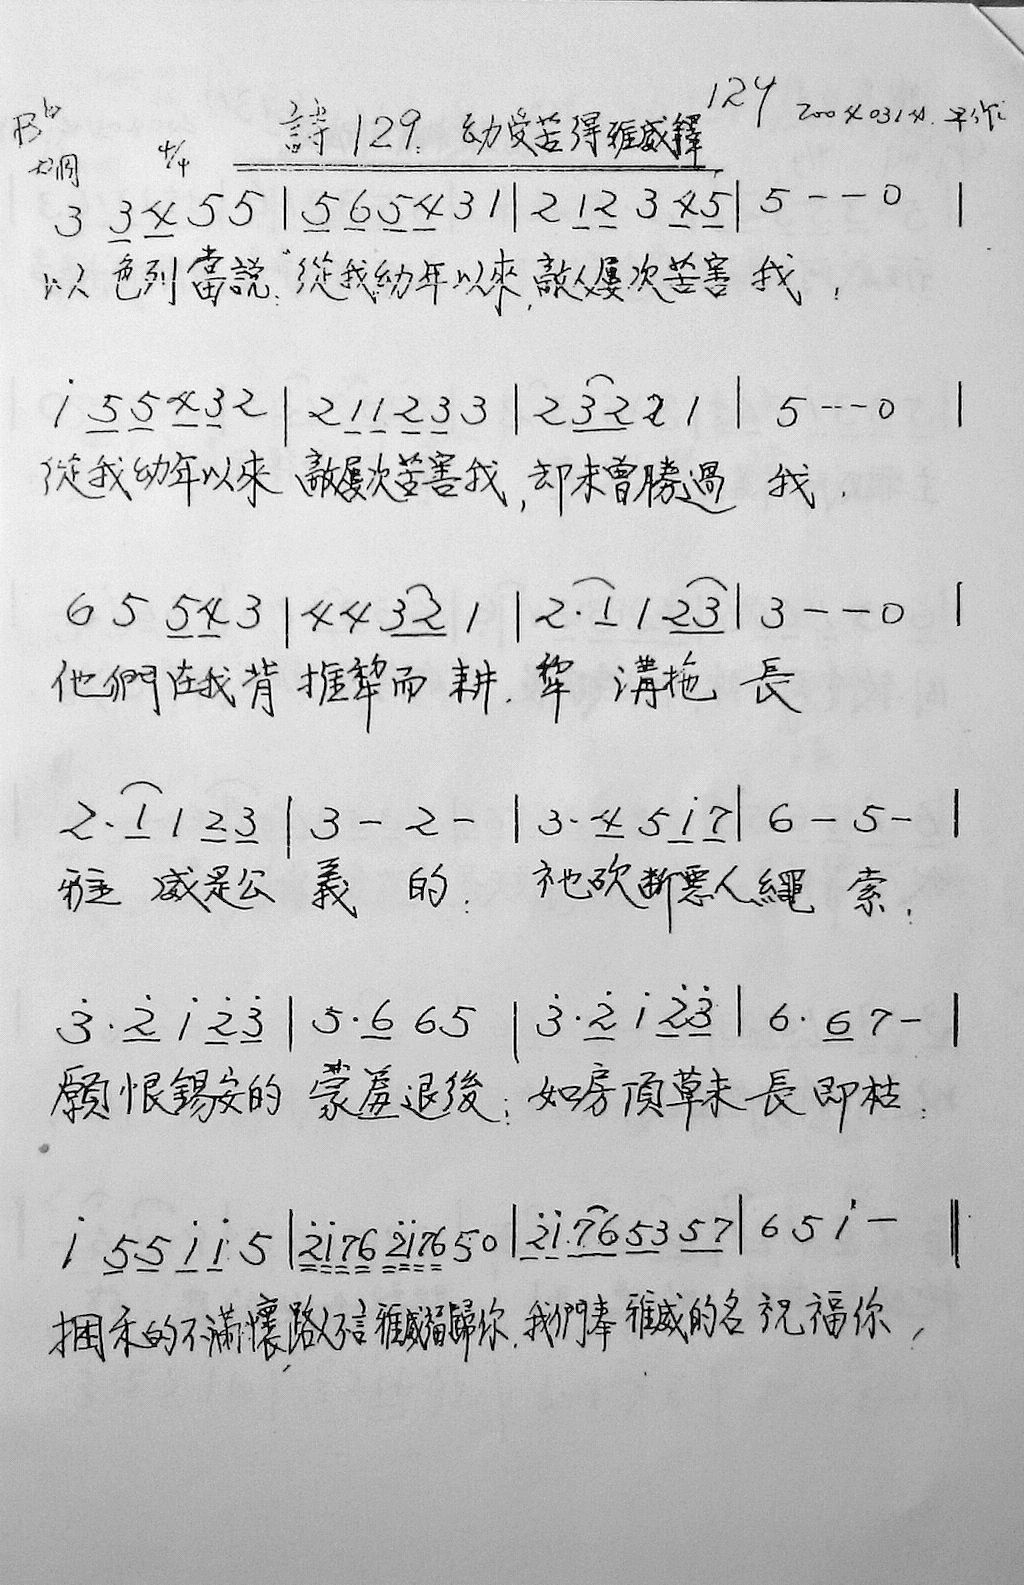 124
B♭調 4/4 詩129. 幼受苦得雅威釋 20040314.
3 3 4 5 5 | 5 6 5 4 3 1 | 2 1 2 3 4 5 | 5 - - 0 |
以色列當說:"從我幼年以來,敵人屢次苦害我,
i 5 5 4 3 2 | 2 1 1 2 3 3 | 2 3 2 2 1 | 5 - - - 0 |
從我幼年以來 敵屢次苦害我,却未曾勝過 我.
6 5 5 4 3 | 4 4 3 2 1 | 2 · 1 1 2 3 | 3 - - 0 |
他們在我背推犂而耕.犂溝拖長
2 · 1 1 2 3 | 3 - 2 - | 3 · 4 5 i 7 | 6 - 5 - |
雅威是公義的:祂砍斷惡人繩索.
3̇ · 2̇ i 2̇ 3̇ | 5 · 6 6 5 | 3̇ · 2̇ i 2̇ 3̇ | 6 · 6 7 - |
願恨錫安的蒙羞退後;如房頂草未長即枯:
i 5 5 i i 5 | 2̇ i 7 6 2̇ i 7 6 5 0 | 2̇ i 7 6 5 3 5 7 | 6 5 i - ‖
捆禾的不滿懷,路人不言雅威福歸你.我們奉雅威的名祝福你,